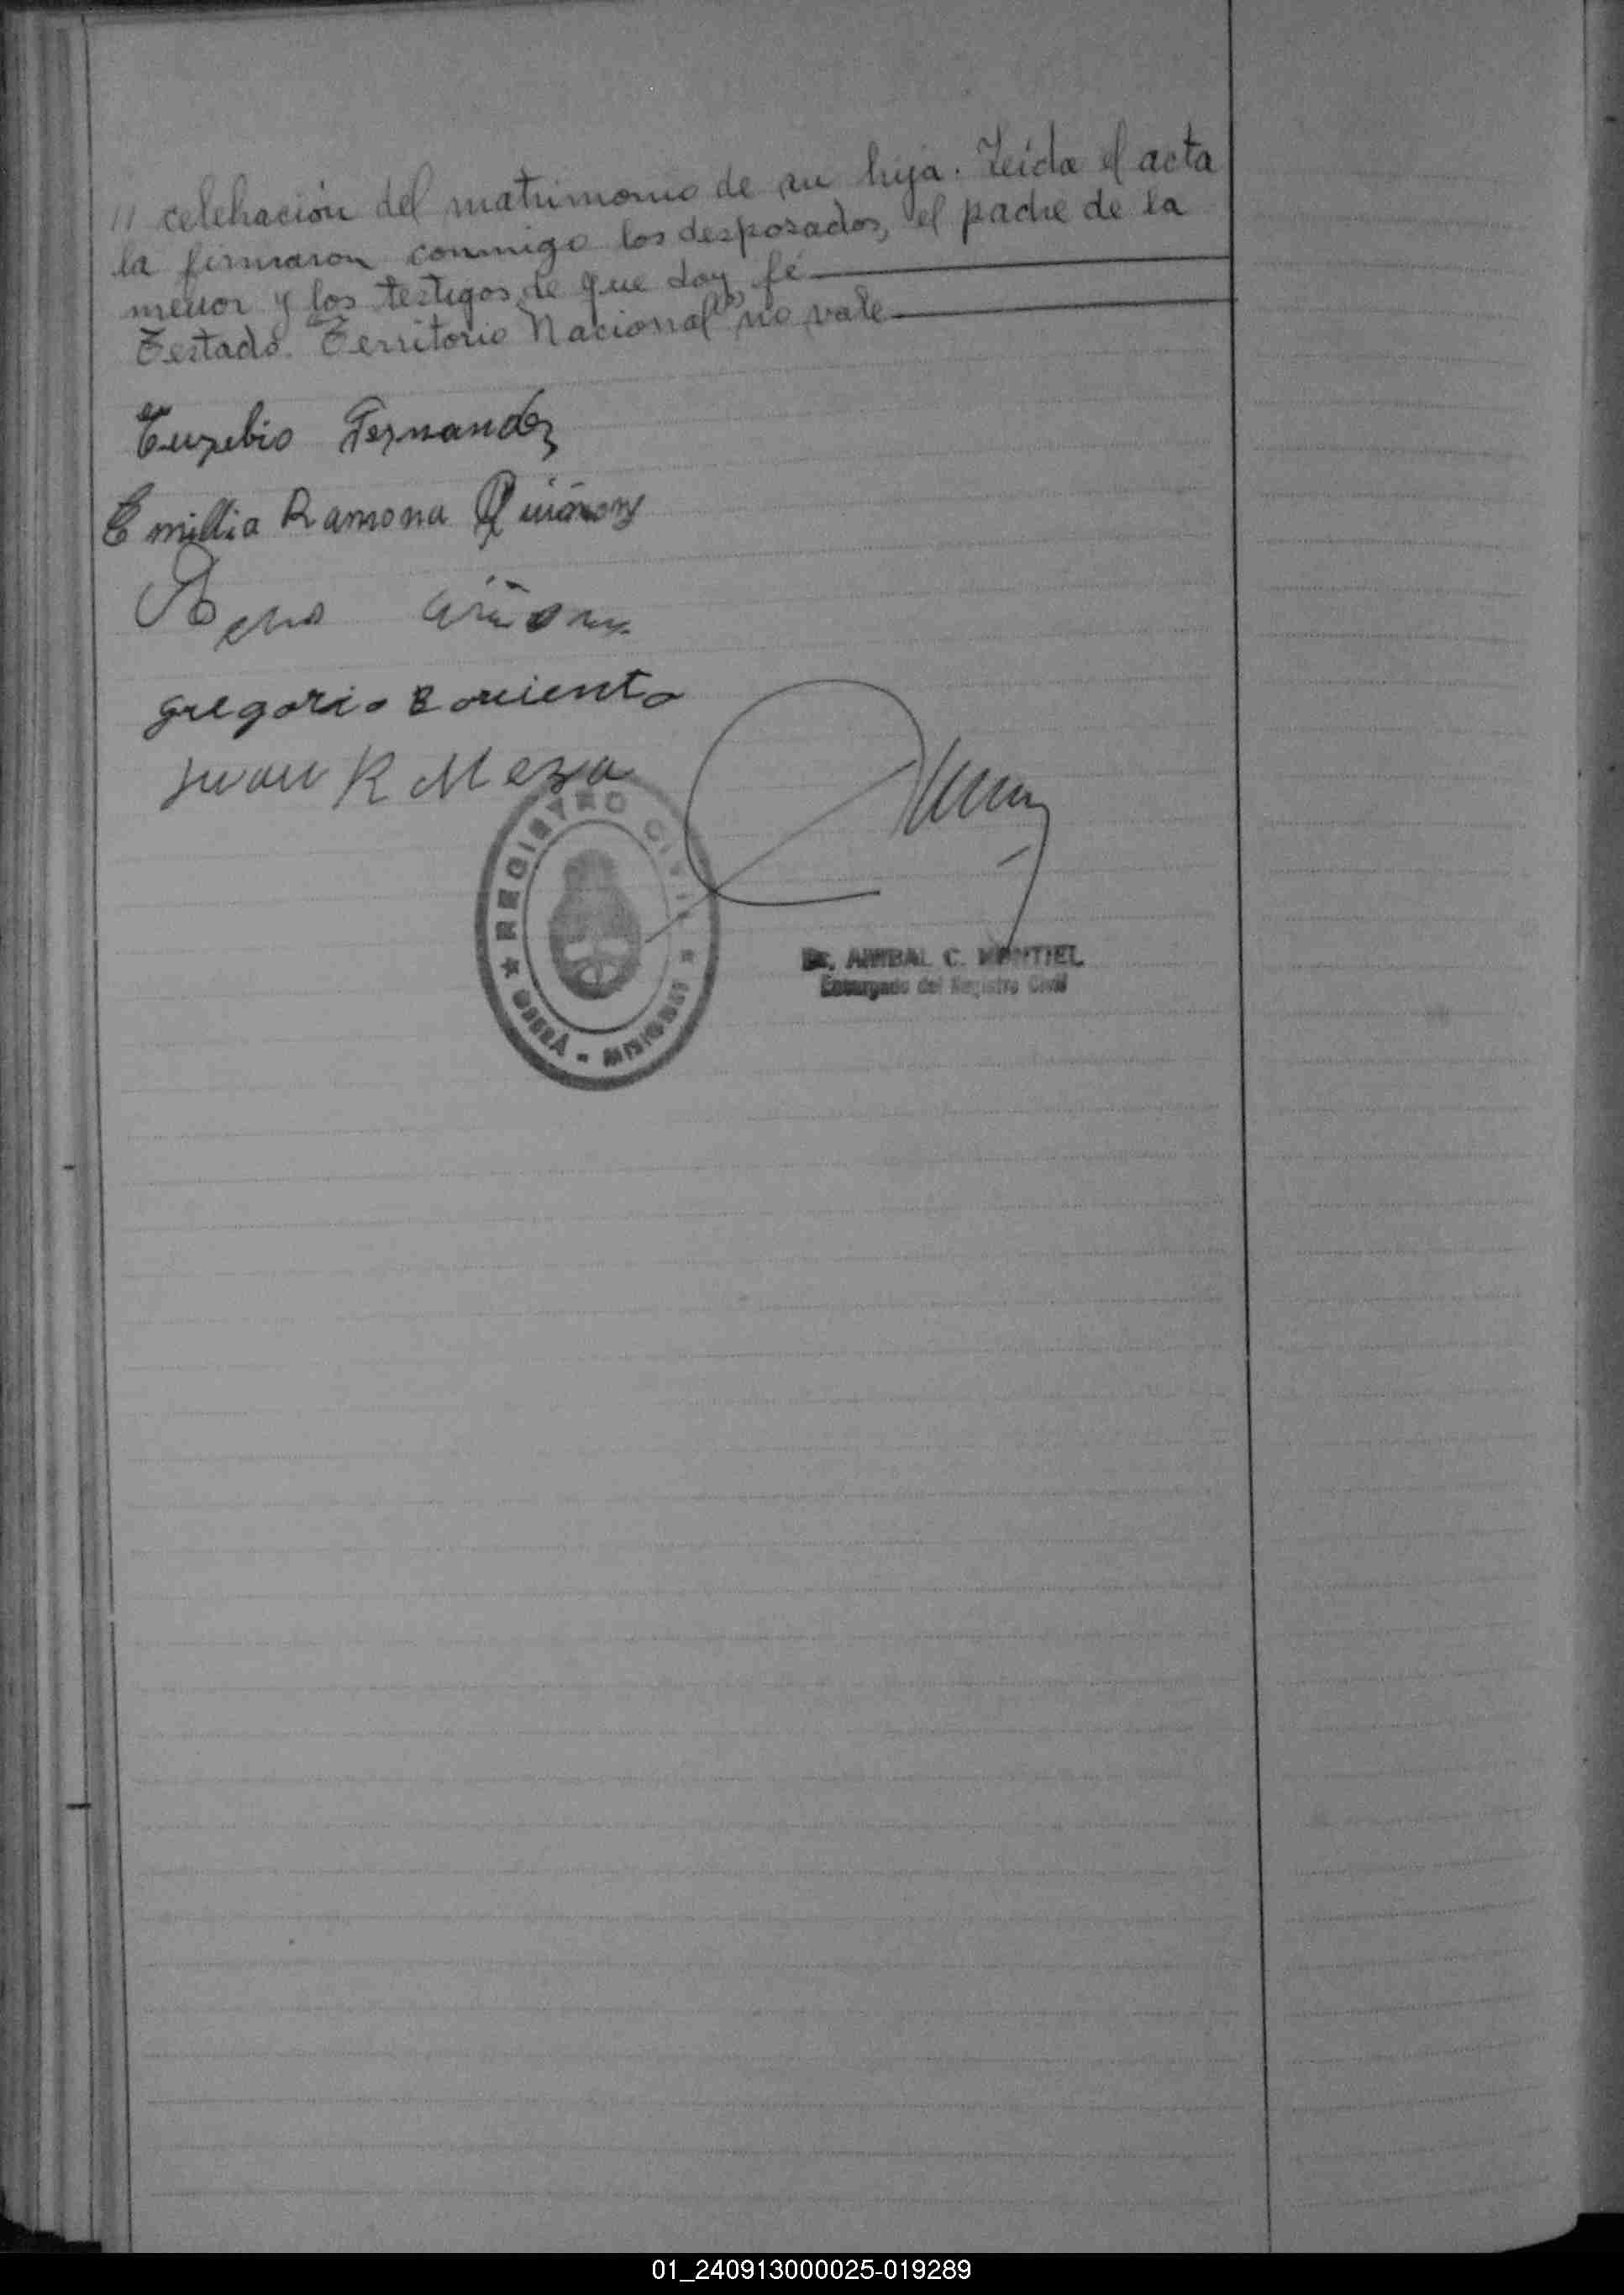 // celebración del matrimonio de su hija. Leída el acta
la firmaron conmigo los desposados, el padre de la
menor y los testigos de que doy fé
Testado. "Territorio Nacional" no vale
Euzebio Fernandez
Emillia Ramona Quiñonez
Gregorio
Juan R Meza
REGISTRO CIVIL
OBERÁ - MISIONES
Dr. ANIBAL C. MONTIEL
Encargado del Registro Civil
01_240913000025-019289